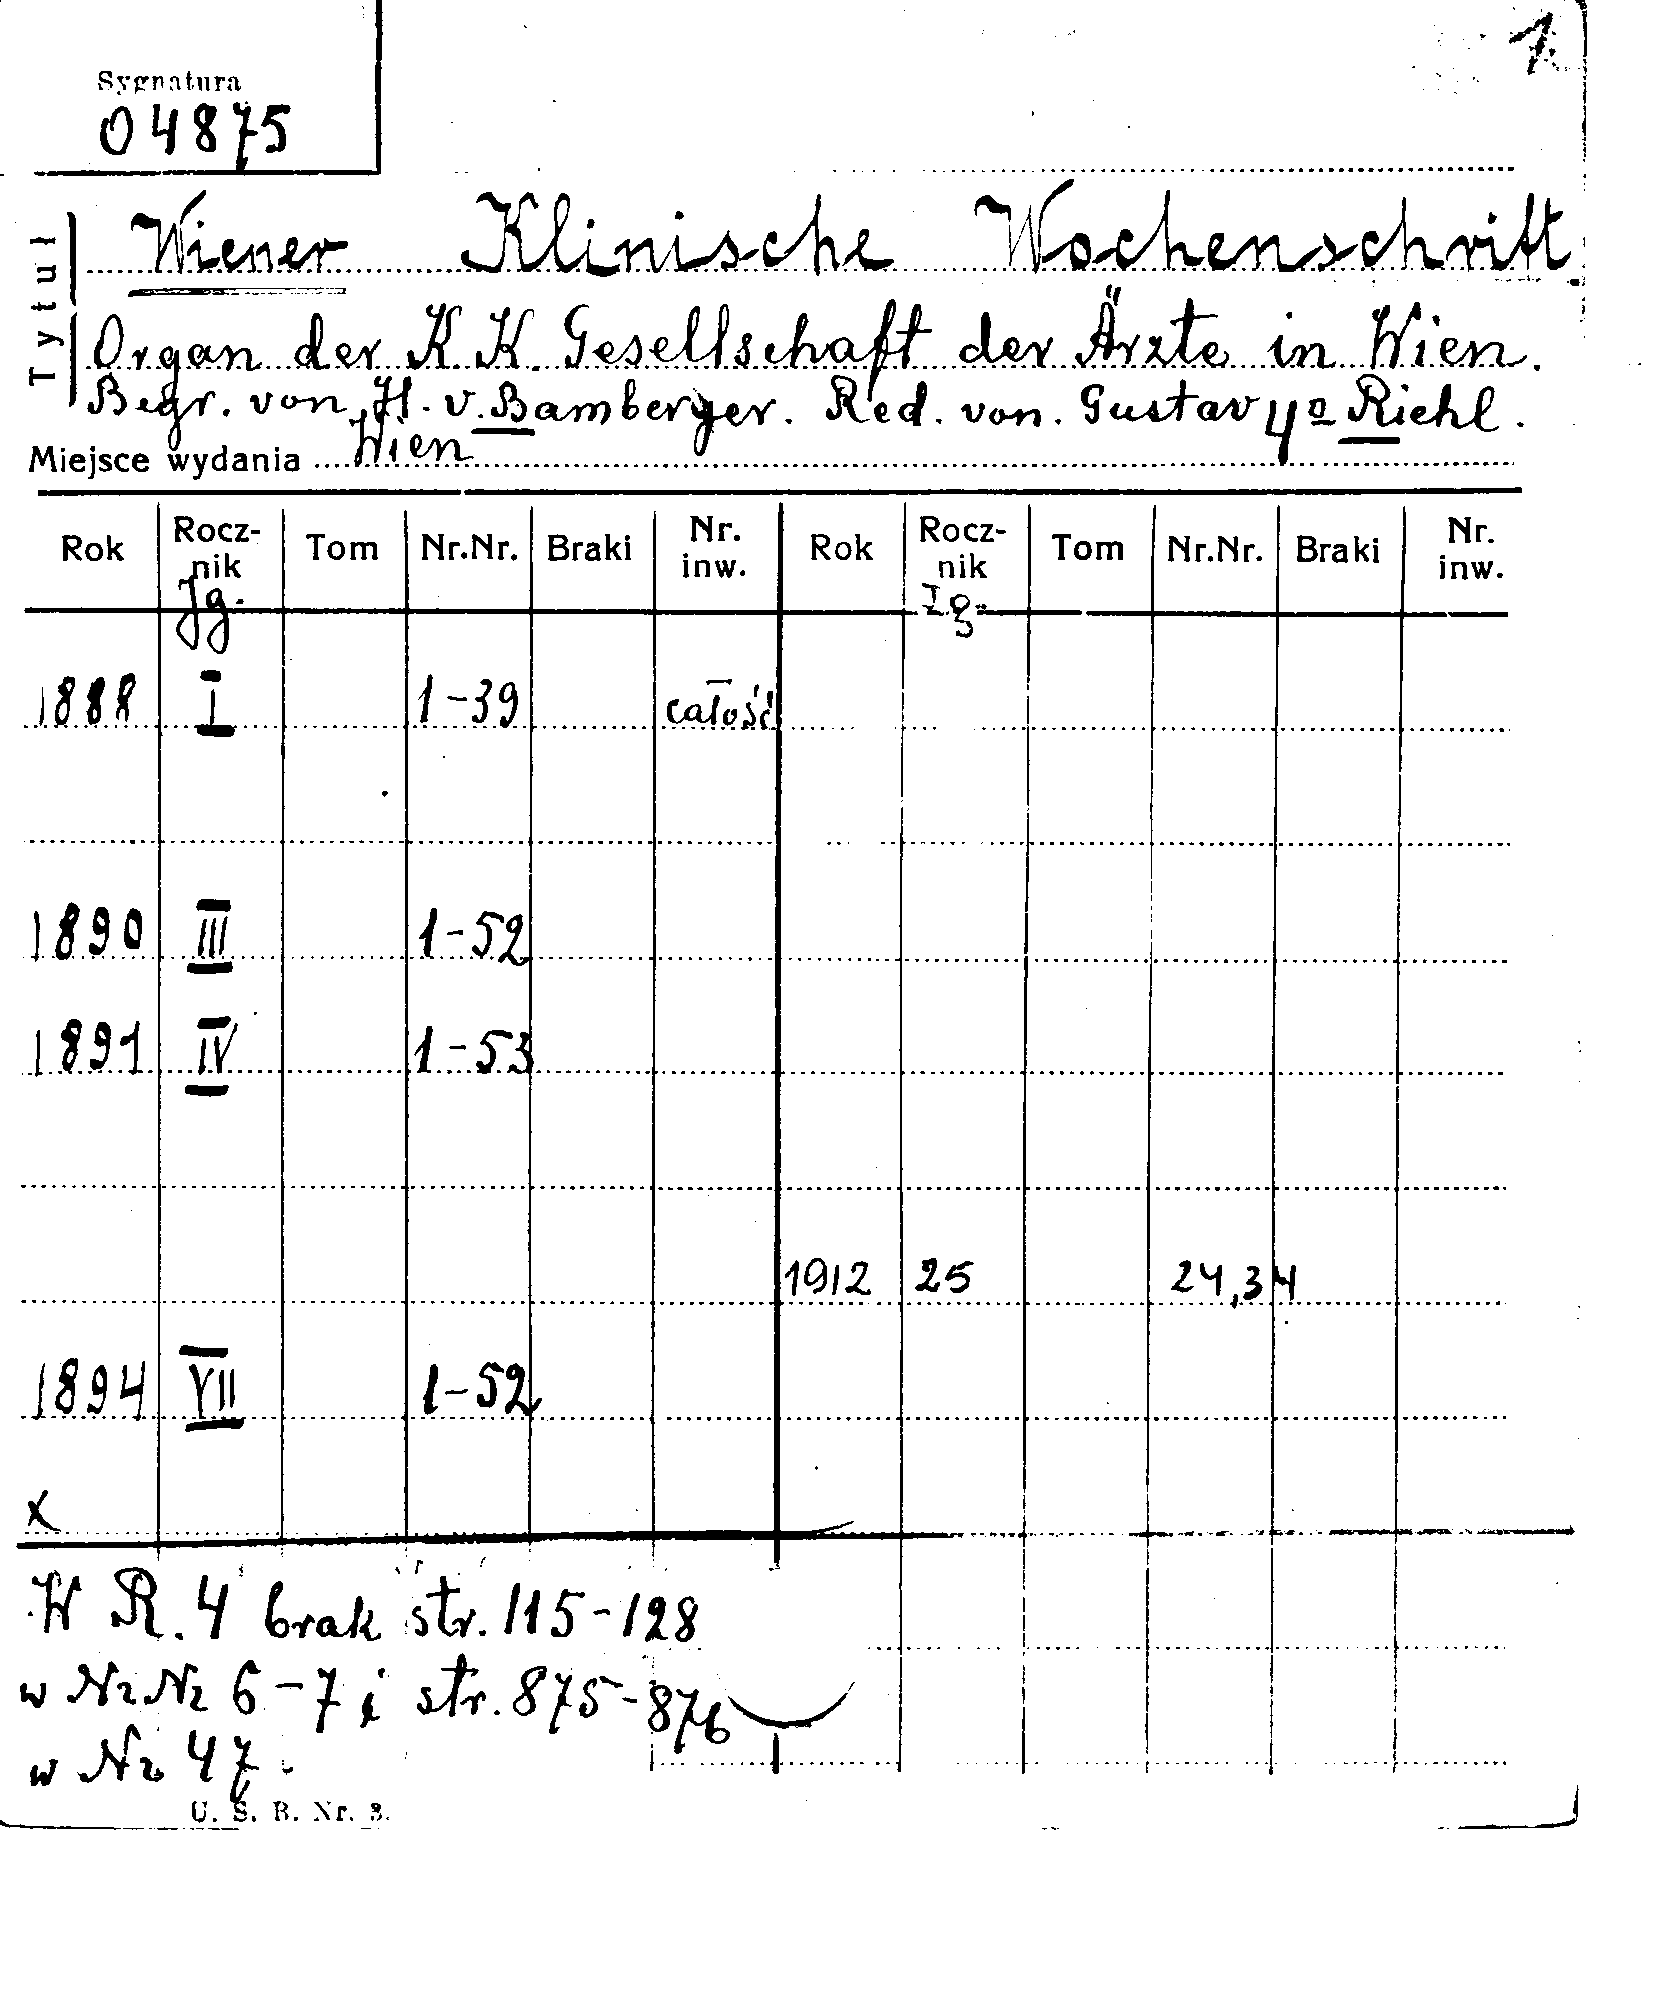 1
Sygnatura
04875
Tytuł
Wiener Klinische Wochenschrift.
Organ der K.K. Gesellschaft der Ärzte in Wien.
Begr. von H. v. Bamberger. Red. von. Gustav Riehl. 4º
Miejsce wydania Wien
Rok Rocz-nik Tom Nr.Nr. Braki Nr. inw. Rok Rocz-nik Tom Nr.Nr. Braki Nr. inw.
Jg. Jg.
1888 I 1-39 całość
1890 III 1-52
1891 IV 1-53
1912 25 24,34
1894 VII 1-52
x
W R. 4 brak str. 115-128
w Nr Nr 6-7 i str. 875-876
w Nr 47.
U. S. B. Nr. 3.